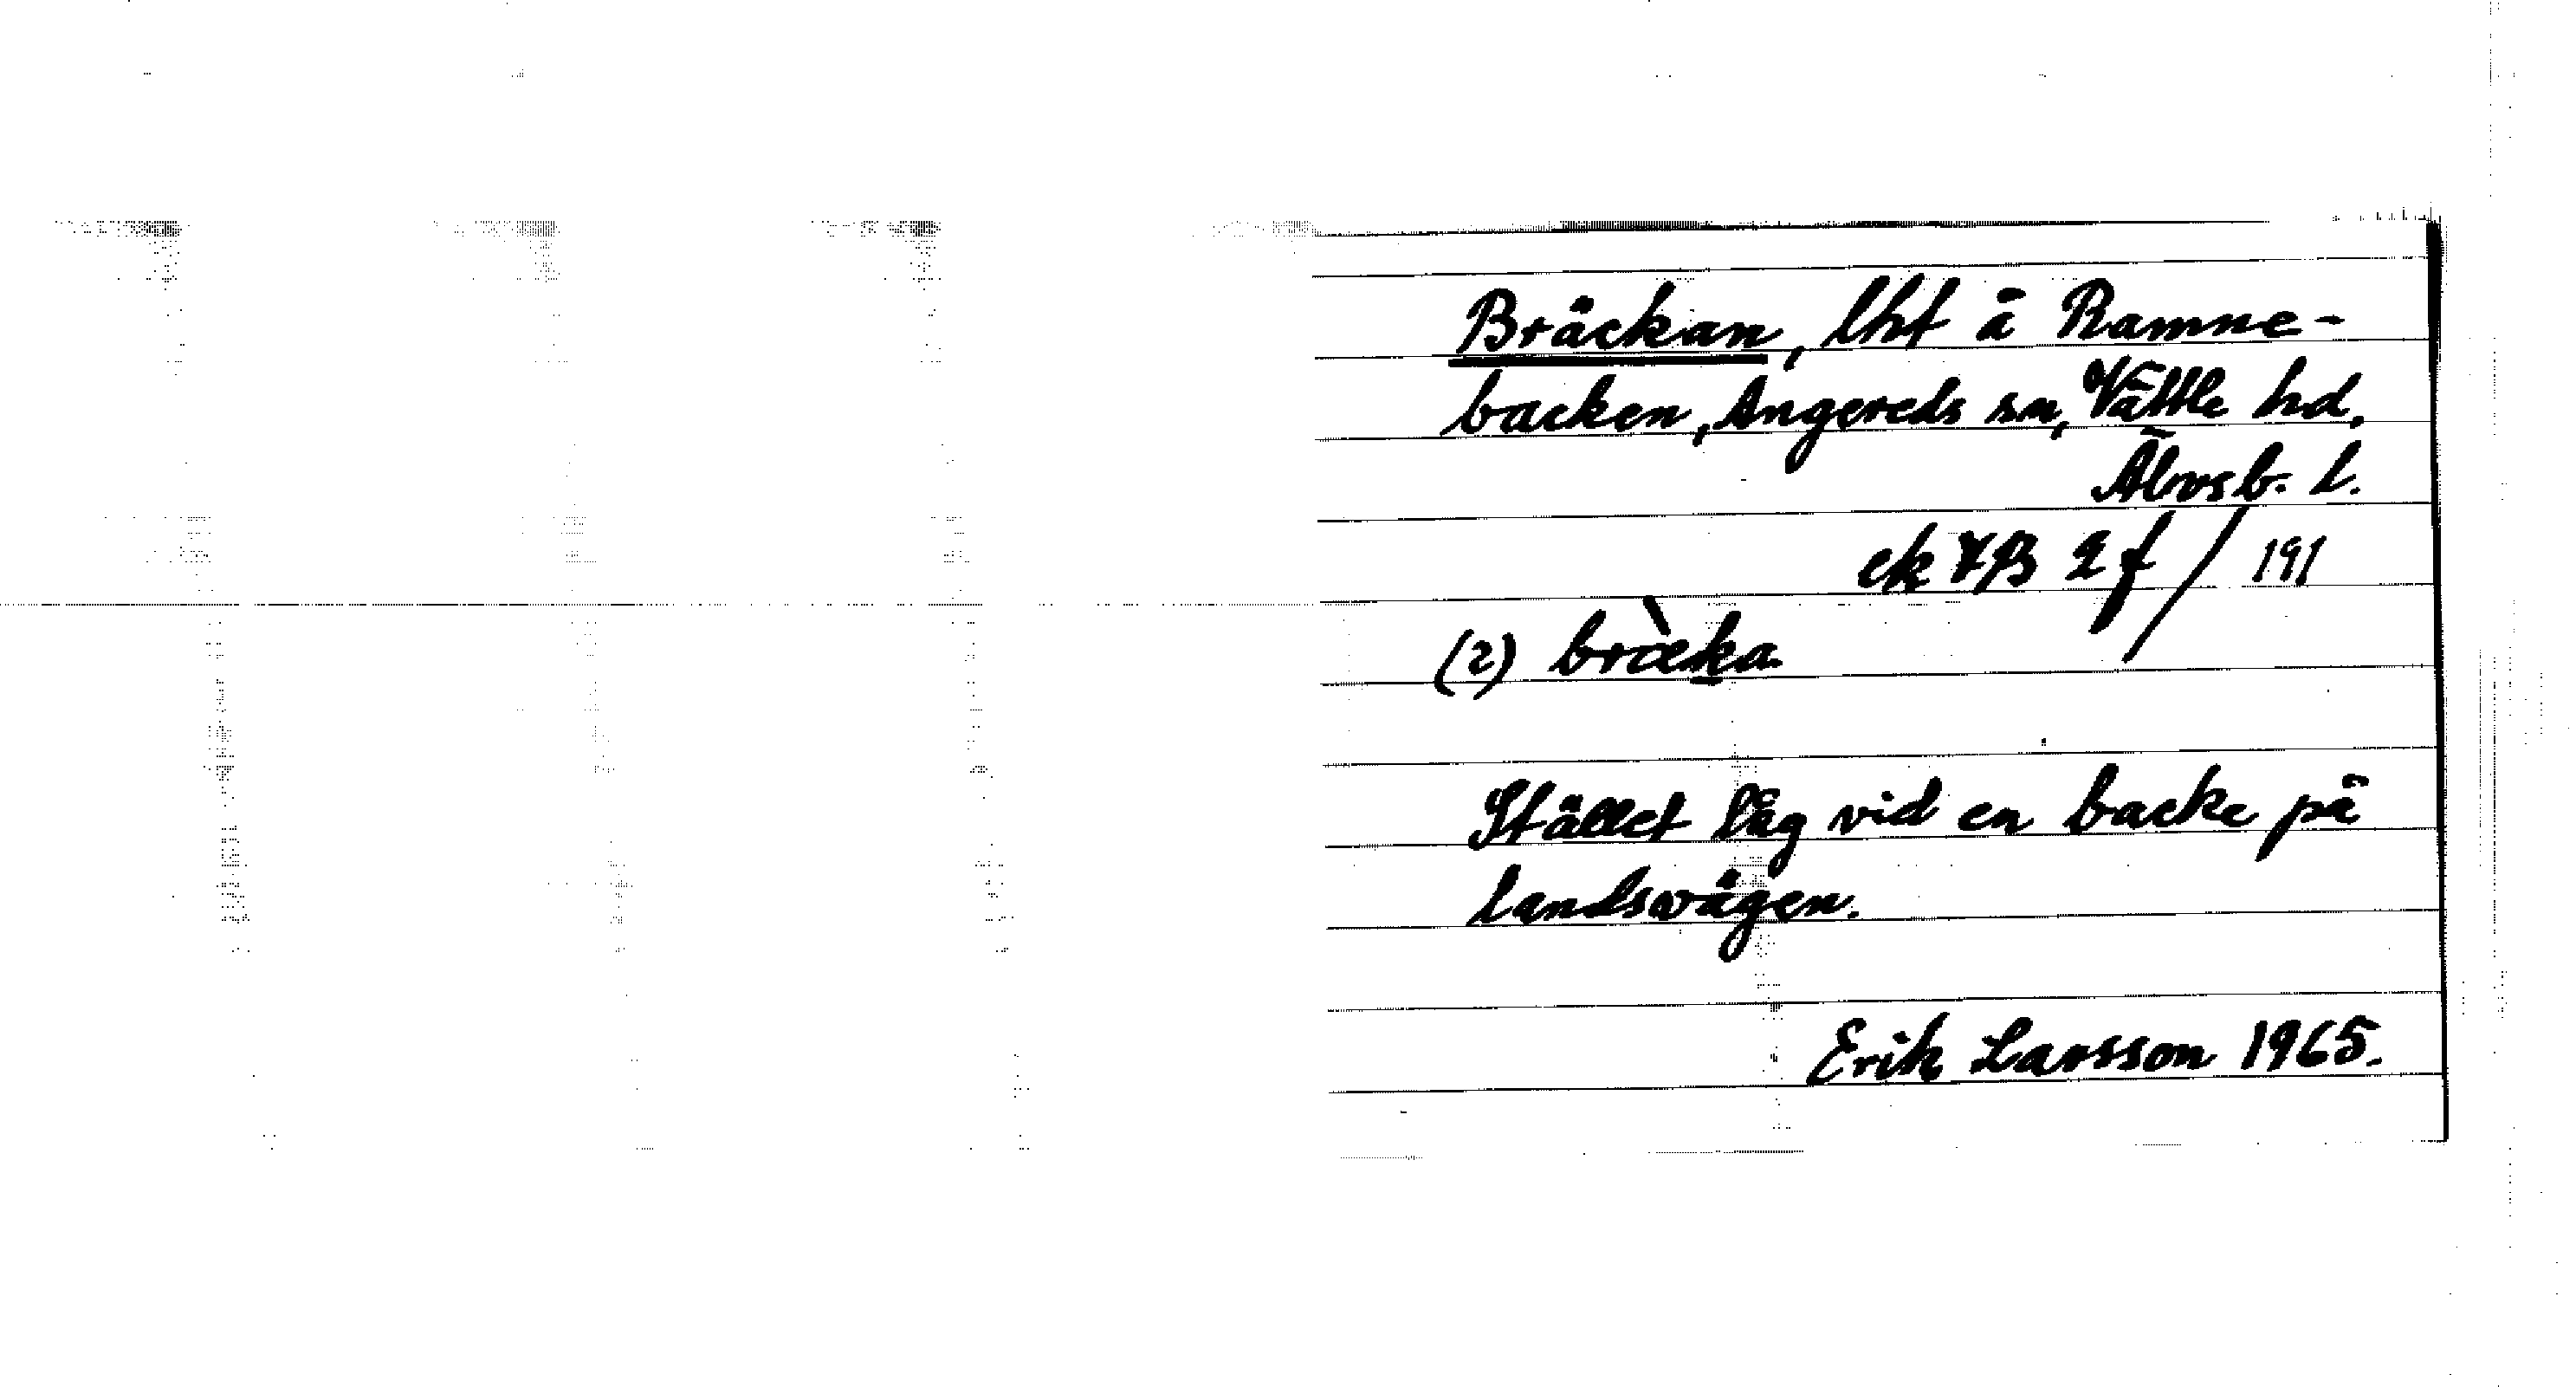 Bräckan, lht å Ramne-
backen, Angereds sn, Vättle hd,
Älvsb. l.
ek 7B 2f / 191
(2) bræ̀ka
Stället låg vid en backe på
landsvägen.
Erik Larsson 1965.